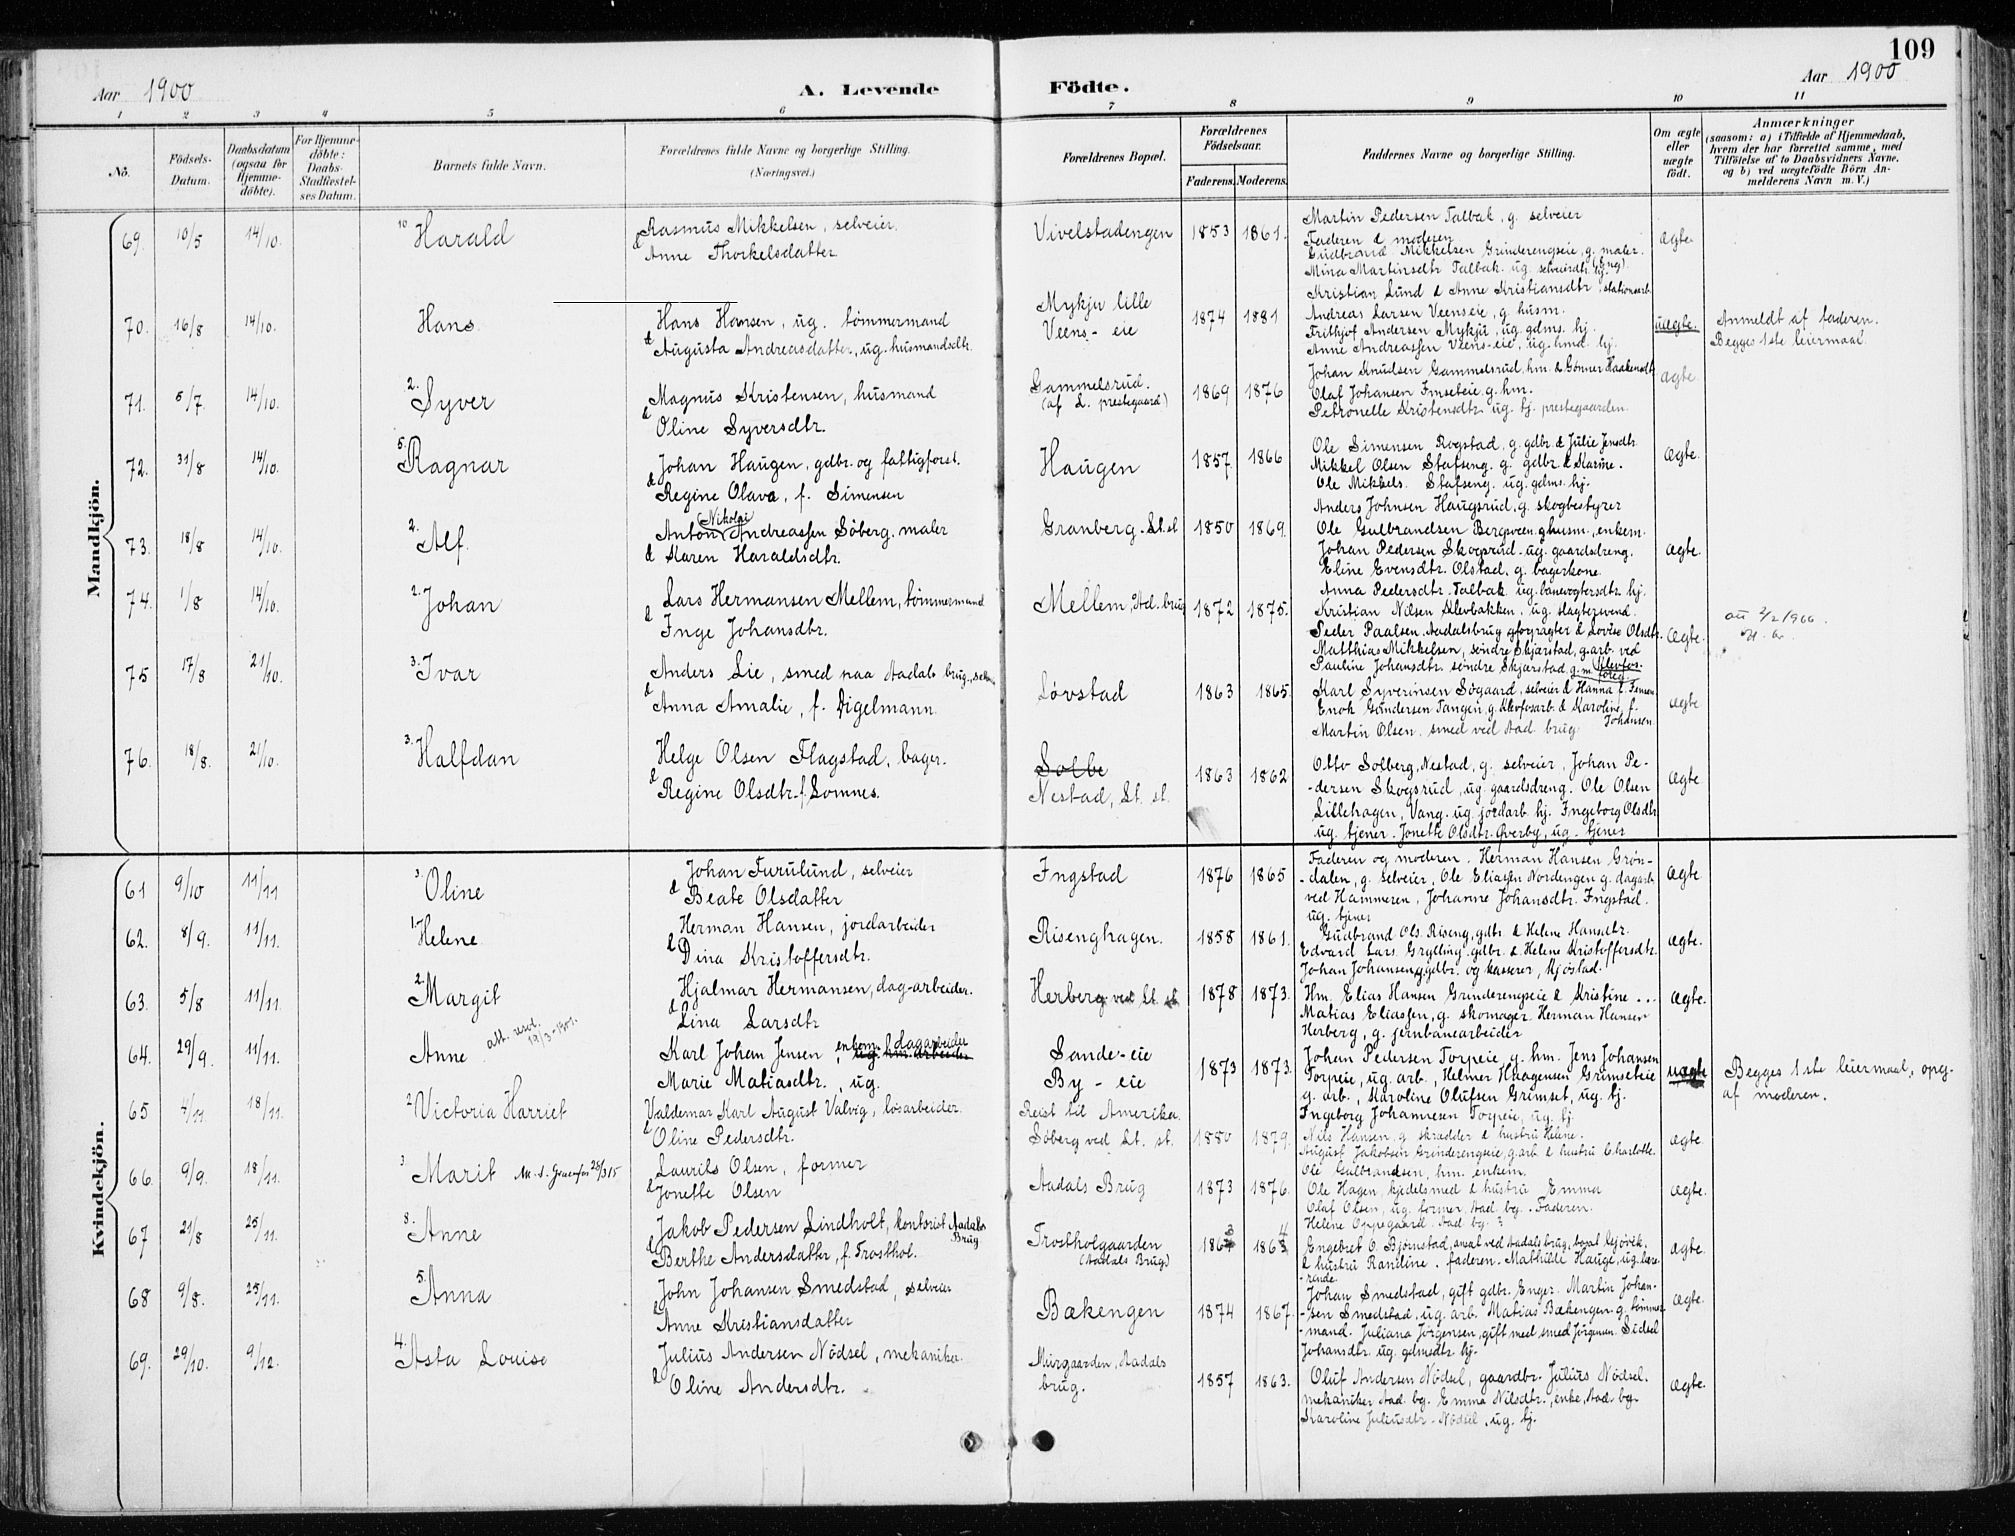 109
Aar 1900
A. Levende Födte.
Aar 1900
1 2 3 4 5 6 7 8 9 10 11
No.
Födsels-Datum.
Daabsdatum (ogsaa for Hjemme-döbte).
For Hjemme-döbte: Daabs-Stadfæstel-ses Datum.
Barnets fulde Navn.
Forældrenes fulde Navne og borgerlige Stilling.
(Næringsvei.)
Forældrenes Bopæl.
Forældrenes Födselsaar.
Faderens. Moderens.
Faddernes Navne og borgerlige Stilling.
Om ægte eller uægte födt.
Anmærkninger
(saasom: a) i Tilfælde af Hjemmedaab, hvem der har forrettet samme, med Tilföielse af to Daabsvidners Navne. og b) ved uægtefödte Börn An-melderens Navn m. V.)
Mandkjön.
69. 10/5 14/10. 10 Harald
Rasmus Mikkelsen, selveier.
& Anne Thorkelsdatter
Vivelstadengen 1853 1861.
Martin Pedersen Talbak, g. selveier
Faderen & moderen
Gudbrand Mikkelsen Grinderengseie, g. maler.
Mina Martinsdtr Talbak ug. selveierdtr. hj.
ægte
70. 16/8 14/10. Hans
Hans Hansen, ug. tømmermand
& Augusta Andreasdatter, ug. husmandsdtr.
Mykju lille
Veens-eie 1874 1881
Kristian Lund & Anne Kristiansdtr stationsarb.
Andreas Larsen Veenseie, g. husm.
Frithjof Andersen Mykju, ug. gdms. hj.
Anne Andreassen Veens-eie, ug. hmd. hj.
uægte.
Anmeldt af faderen.
Begges 1ste leiermaal.
71. 5/7. 14/10. 2. Syver
Magnus Kristensen, husmand
& Oline Syversdtr.
Gammelsrud.
(af L. prestegaard) 1869 1876
Johan Knudsen Gammelsrud, hm. & Gønner Haakensdtr
Olaf Johansen Imseteie g. hm.
Petronelle Kristensdtr ug. tj. prestegaarden.
ægte.
72. 31/8 14/10. 5. Ragnar
Johan Haugen, gdbr. og fattigforst.
& Regine Olava, f. Simensen
Haugen 1857 1866
Ole Simensen Rogstad, g. gdbr. & Julie Jensdtr.
Mikkel Olsen Stafseng. g. gdbr. & Karine.
Ole Mikkels. Stafseng. ug. gdms. hj.
Anders Johnsen Haugsrud, g. skogbestyrer
ægte.
73. 18/8 14/10. 2. Alf.
Anton Nikolai Andreassen Söberg, maler
& Karen Haraldsdtr.
Granberg - Lt. st 1850 1869.
Ole Gulbrandsen Bergsveen g. husm., enkem.
Johan Pedersen Skogsrud - ug. gaardsdreng.
Eline Evensdtr. Olstad, g. bagerkone.
ægte.
74. 1/8 14/10. 2. Johan
Lars Hermansen Mellem, tömmermand
& Inge Johansdtr.
Mellem, Aad. brug 1872 1875.
Anna Pedersdtr. Talbak ug. banevogtersdtr. hj.
Kristian Nilsen Klevbakken, ug. slagtersvend.
Peder Paalsen, Aadalsbrug g forpagter & Lovise Olsdtr.
Matthias Mikkelsen, søndre Skjærstad, g. arb. ved Klevfos.
Pauline Johansdtr. søndre Skjærstad g. m. foreg.
ægte.
75 17/8 21/10. 3. Ivar
Anders Lie, smed paa Aadals brug,
& Anna Amalie, f. Digelmann
Løvstad 1863 1865.
Karl Syverinsen Søgaard, selveier & Hanna f. Jensen
Enok Gundersen Tangen, g. & Karoline f. Johansen
Martin Olsen, smed ved Aad. brug
ægte
76. 18/8. 21/10. 3. Halfdan
Helge Olsen Flagstad, bager.
& Regine Olsdtr. f. Lomnes.
Solbe
Nestad, Lt. st. 1863 1862
Otto Solberg, Nestad, g. selveier, Johan Pe-
-dersen Skogsrud, ug. gaardsdreng. Ole Olsen
Lillehagen, Vang. ug. jordarb. hj. Ingeborg Olsdtr.
ug. tjener. Jonette Olsdtr. Øverby, ug. tjener
ægte
Kvindekjön.
61 9/10 11/11 3. Oline
Johan Furulund, selveier
& Beate Olsdatter
Ingstad 1876 1865
Faderen og moderen. Herman Hansen Grøn-
-dalen, g. selveier, Ole Eliassen Nordengen g. dagarb.
ved Hammeren, Johanne Johansdtr. Ingstad.
ug. tjener
ægte
62. 8/9. 11/11. 1. Helene
Herman Hansen, jordarbeider
& Dina Kristoffersdtr.
Risenghagen. 1858 1861.
Gudbrand Ols. Riseng, gdbr. & Helene Hansdtr.
Edvard Lars. Grylling gdbr. & Helene Kristoffersdtr.
Johan Johansen, gdbr. og kasserer, Mjøstad.
ægte.
63. 5/8 11/11. 2. Margit
Hjalmar Hermansen, dag-arbeider.
& Lina Larsdtr
Herberg ved Lt. st. 1878 1873.
Hm. Elias Hansen Grinderengseie & Kristine ...
Matias Eliassen, g. skomager. Herman Hansen
Herberg, g. jernbanearbeider
ægte.
64. 29/9. 11/11. Anne
Karl Johan Jensen, enkem. dagarbeider
Marie Matiasdtr., ug.
Sande-eie
By-eie 1873 1873.
Johan Pedersen Torpeie, g. hm. Jens Johansen
Torpeie, ug. arb., Helmer Haagensen Grimseteie
g. arb., Karoline Olufsen Grimset, ug. tj.
Ingeborg Johannesen Torpeie, ug. tj.
uægte
Begges 1ste leiermaal, opg.
af moderen.
65 4/11 18/11. 2 Victoria Harriet
Valdemar Karl August Valvig, løsarbeider.
& Oline Pedersdtr.
Reist til Amerika.
Söberg ved Lt. st. 1880 1879.
Nils Hansen, g. skrædder & hustru Helene.
August Jakobsen Grinderengseie, g. arb. & hustru Charlotte.
Ole Gulbrandsen, hm. enkem.
ægte
66. 9/9. 18/11. 3 Marit
Laurits Olsen, former
& Jonette Olsen
Aadals Brug 1873 1876.
Ole Hagen, kjedelsmed & hustru Emma
Olaf Olsen, ug. former, Aad. bg. Faderen.
Helene Oppegaard. Aad bg.
ægte.
67 21/8 25/11. 8. Anne
Jakob Pedersen Lindholt, kontorist Aadals Brug
& Berthe Andersdatter, f. Frosthol.
Frostholgaarden
(Aadals Brug)
Engebret O. Bjørnstad, ansat ved Aadalsbrug, bopæl Gjövik,
& hustru Randine. faderen. Mathilde Hauge, ug. lære-
-rinde.
ægte.
68 9/8. 25/11. 5. Anna
John Johansen Smedstad, selveier
& Anne Kristiansdatter
Bækengen 1874 1867.
Johan Smedstad, gift gdbr. Enger. Martin Johan-
-sen Smedstad, ug. arb. Matias Bækengen g. tømmer-
-mand. Juliana Jørgensen, gift med smed Jörgensen. Sidsel
Johansdtr. ug. gdmsdtr. hj.
ægte.
69. 29/10. 9/12. 4. Asta Louise
Julius Andersen Nödsel, mekaniker.
& Oline Andersdtr.
Murgaarden, Aadals
brug. 1857 1863.
Oluf Andersen Nödsel, gaardbr. Julius Nödsel.
mekaniker Aad. bg. Emma Nilsdtr., enke, Aad. bg.
Karoline Juliusdtr. Nödsel, ug. hj.
ægte.